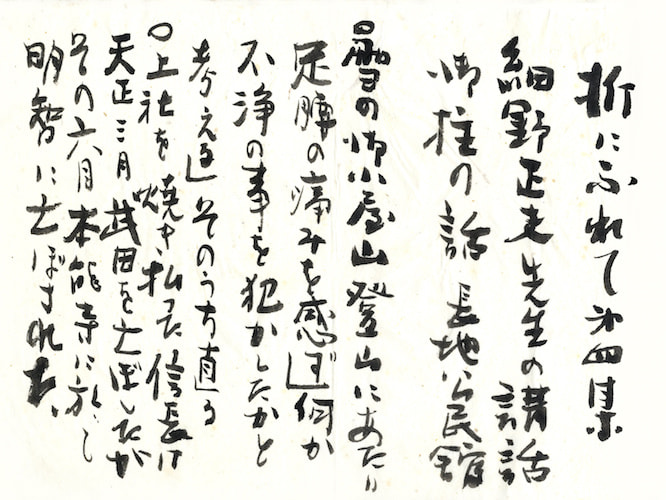 折にふれて 第四集
細野正夫先生の講話
御柱の話 長地公民館
の御小屋山登山にあたり
足腰の痛みを感じ何か
不浄の事を犯かしたかと
考える」そのうち直る
〇上社を焼き払った信長は
天正三月武田を亡ぼしたが
その六月本能寺に於いて
明智に亡ぼされた、